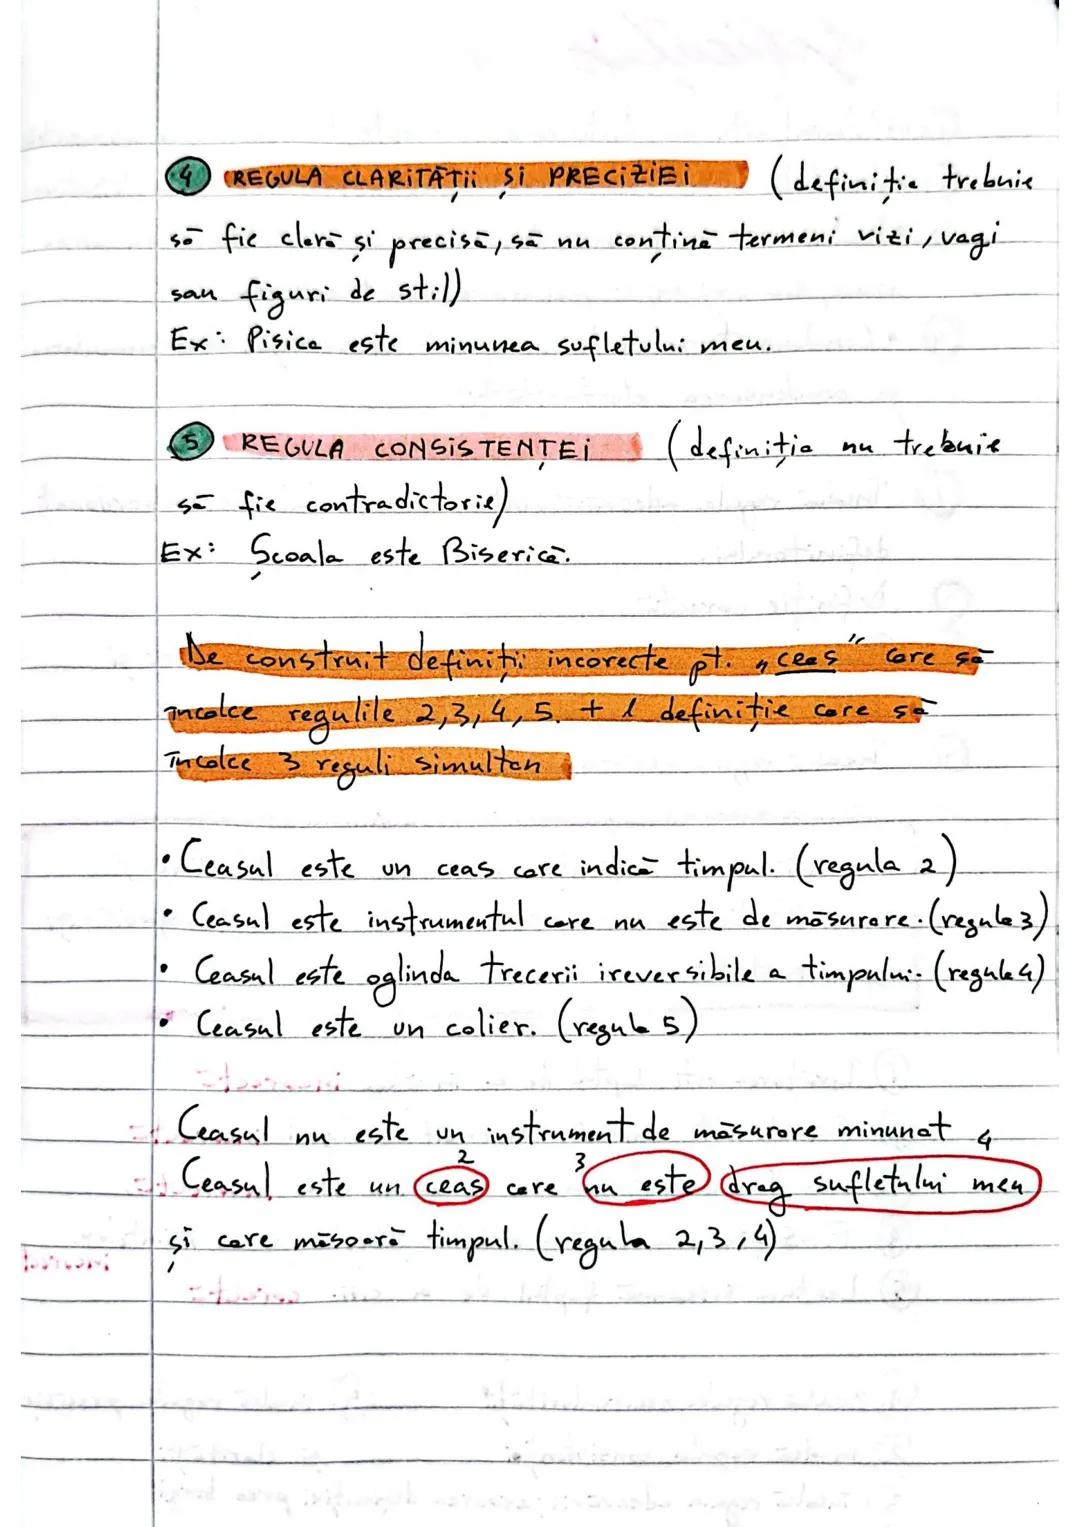 4 REGULA CLARITĂȚII ȘI PRECIZIEI (definiția trebuie
să fie clară și precisă, să nu conțină termeni vizi, vagi
sau figuri de stil)
Ex: Pisica este minunea sufletului meu.
5 REGULA CONSISTENȚEI (definiția nu trebuie
să fie contradictorie)
Ex: Școala este Biserică.
De construit definiții incorecte pt. „ceas” care să
încalce regulile 2,3,4,5. + 1 definiție care să
încalce 3 reguli simultan
• Ceasul este un ceas care indică timpul. (regula 2)
• Ceasul este instrumentul care nu este de măsurare. (regula 3)
• Ceasul este oglinda trecerii ireversibile a timpului. (regula 4)
• Ceasul este un colier. (regula 5)
Ceasul nu este un instrument de măsurare minunat
2 3 4
Ceasul este un ceas care nu este drag sufletului meu
și care măsoară timpul. (regula 2,3,4)